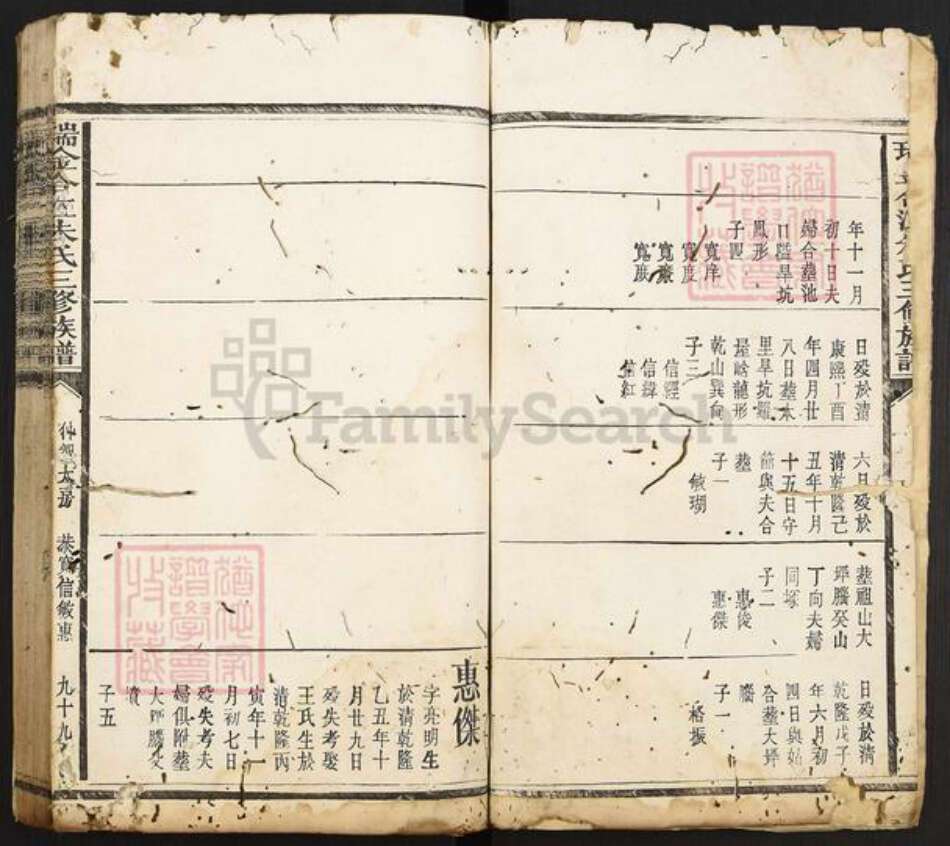 年十一月
初十日夫
婦合塟池
口塩旱坑
鳳形
子四
寬庠
寬度
寬康
日殁於清
康熙丁酉
年四月廿
八日塟水
里旱坑
龍形
乾山巽向
子三
信經
信緯
信紅
六月殁於
清乾隆己
丑年十月
十五日守
節與夫合
塟
子一
敏瑚
塟祖山大
坪腦癸山
丁向夫婦
同塚
子二
惠俊
惠傑
日殁於清
乾隆戊子
年六月初
四日與姑
合塟大坪
腦
子一
格振
惠傑
字亮明生
於清乾隆
乙丑年十
月廿九日
殁失考娶
王氏生於
清乾隆丙
寅年十一
月初七日
殁失考夫
婦俱附塟
大坪腦父
墳
子五
瑞金合溪朱氏三修族譜
大房
寬信敏惠
九十九
猶他家譜學會收藏
猶他家譜學會收藏
FamilySearch